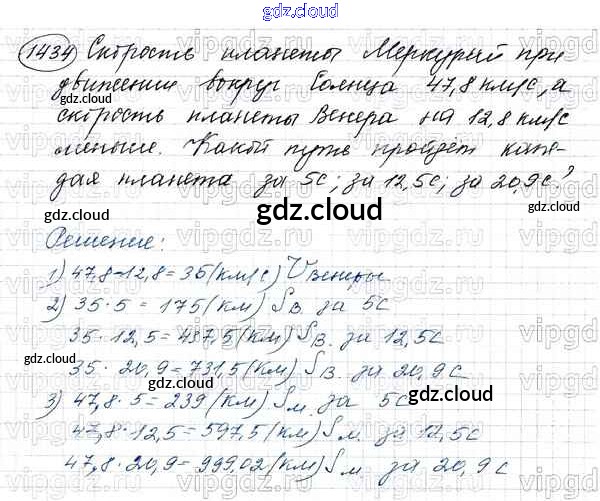 gdz.cloud
1434 Скорость планеты Меркурий при
gdz.cloud
движении вокруг Солнца 47,8 км/с, а
скорость планеты Венера на 12,8 км/с
меньше. Какой путь пройдёт каж-
дая планета за 5с; за 12,5с; за 20,9с?
gdz.cloud
gdz.cloud
gdz.cloud
Решение:
1) 47,8-12,8=35(км/с) Vвенеры
2) 35·5 = 175(км) Sв. за 5с
35·12,5=437,5(км) Sв. за 12,5с
gdz.cloud
35·20,9=731,5(км) Sв. за 20,9с
3) 47,8·5=239(км) Sм. за 5с
gdz.cloud
47,8·12,5=597,5(км) Sм. за 12,5с
47,8·20,9=999,02(км) Sм. за 20,9с
gdz.cloud